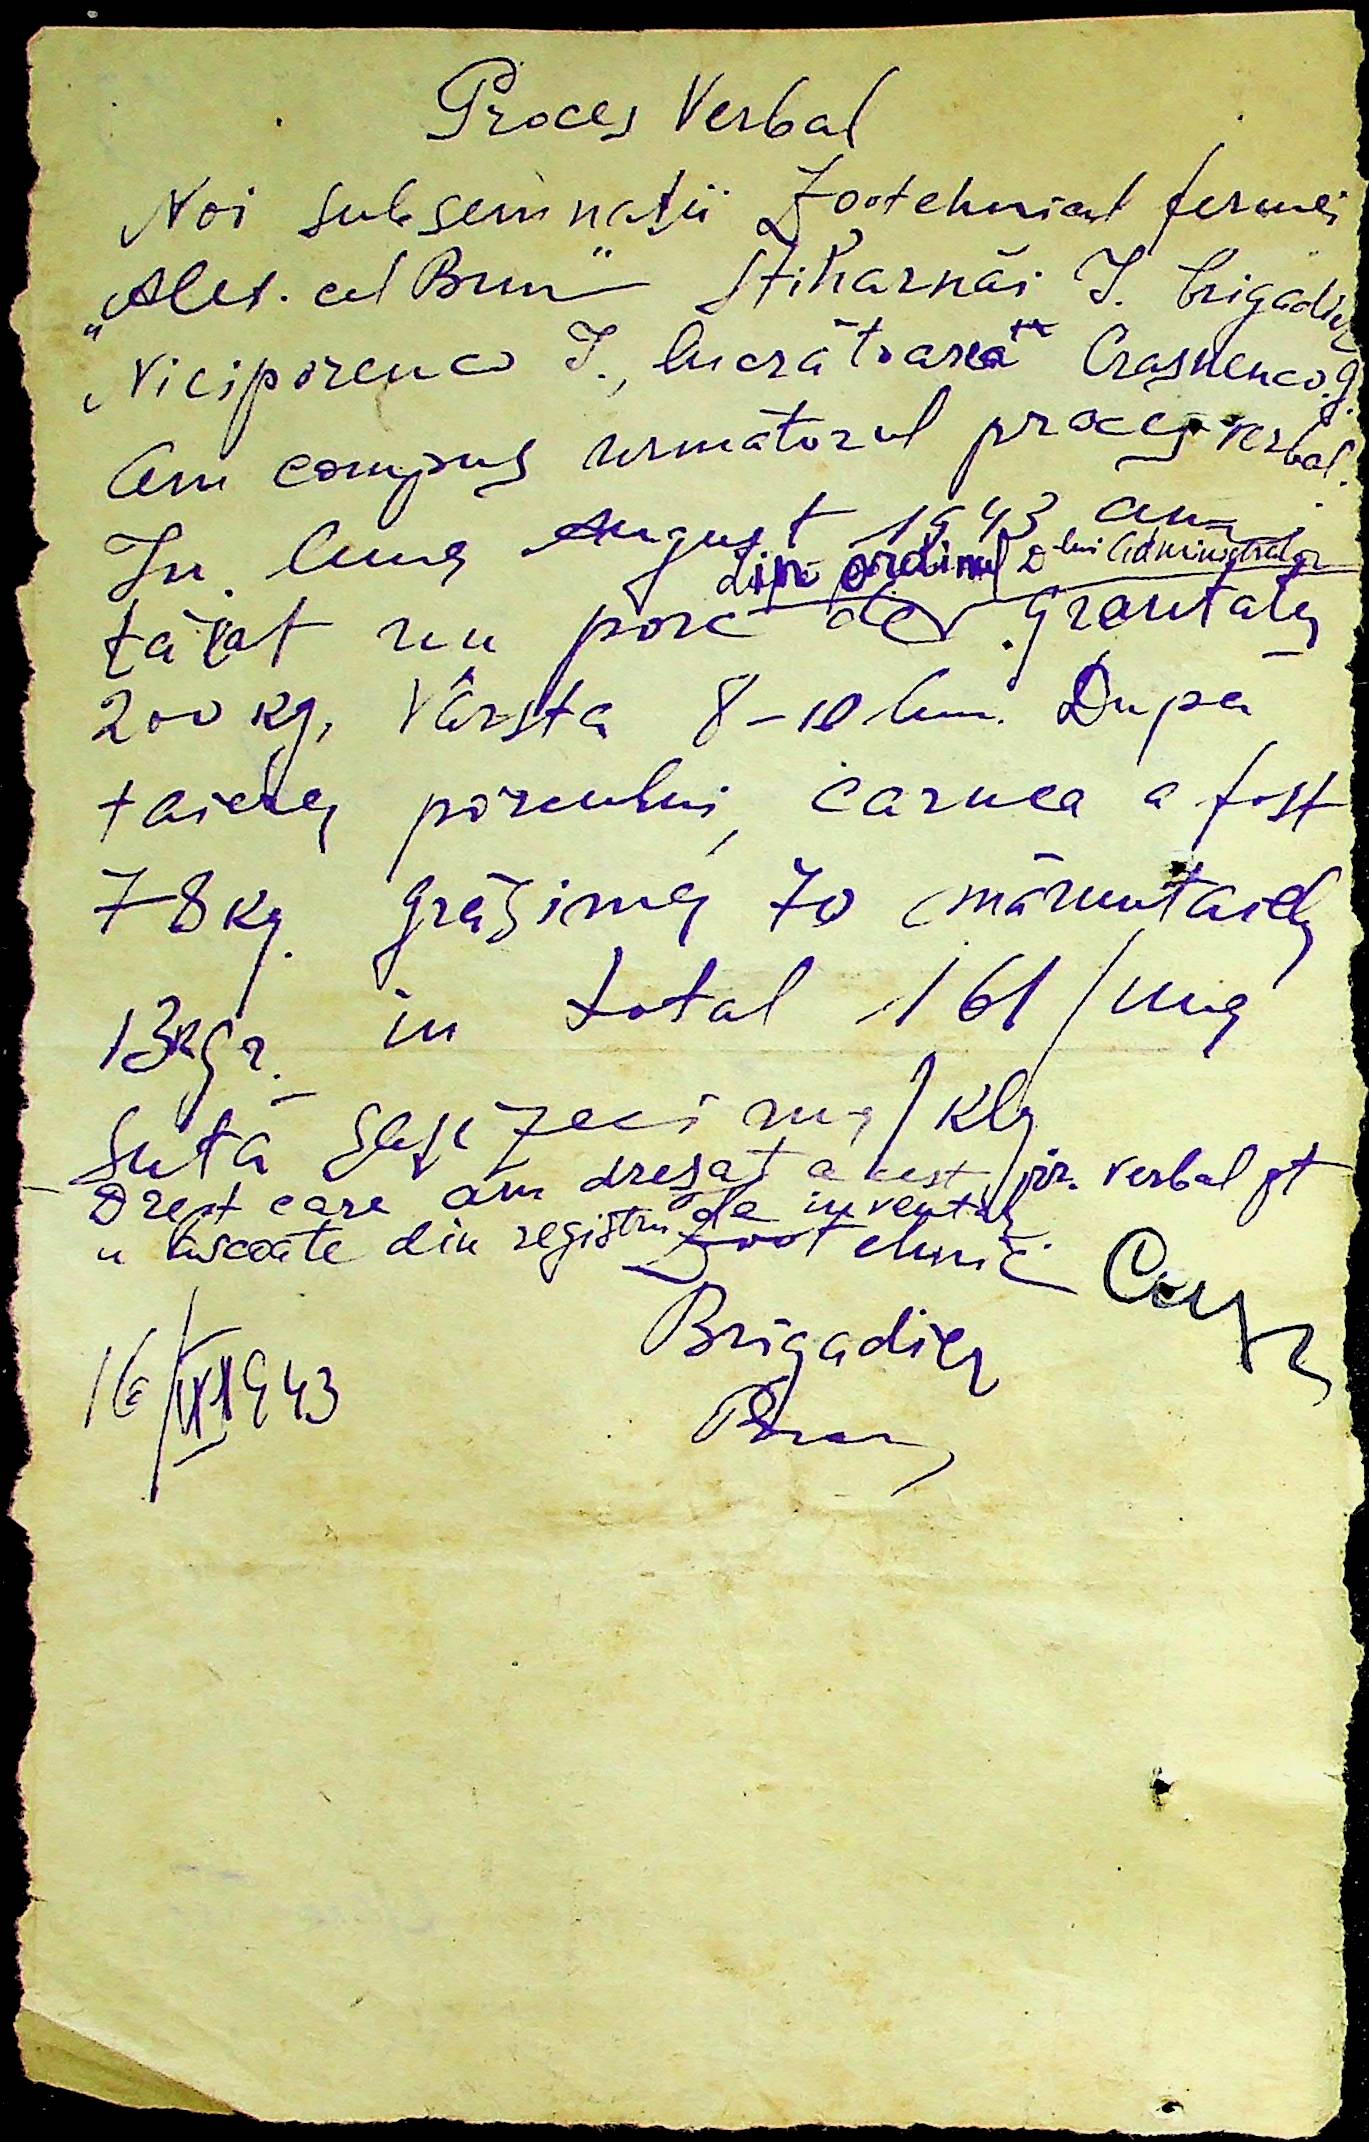 Proces Verbal
Noi subsemnații Zootehnicul fermei
„Alex. cel Bun" Știharnăi I. brigadier
Niciporenco I., lucrătoarea Crasnenco. g.
Am compus următorul proces verbal.
In luna August 1943 am
din ordinul Dlui Administrator
tăjat un porc de greutatea
200 kg, Vârsta 8-10 lun. După
taierea porcului, carnea a fost
78 kg. grăsimea 70 măruntaiele
13 kgr. in total 161 /una
Sută șase zeci una/ klg
Drept care am dresat acest pr. verbal pt
a scoate din registru de inventar
Zootehnic
Brigadier
16/IX 1943